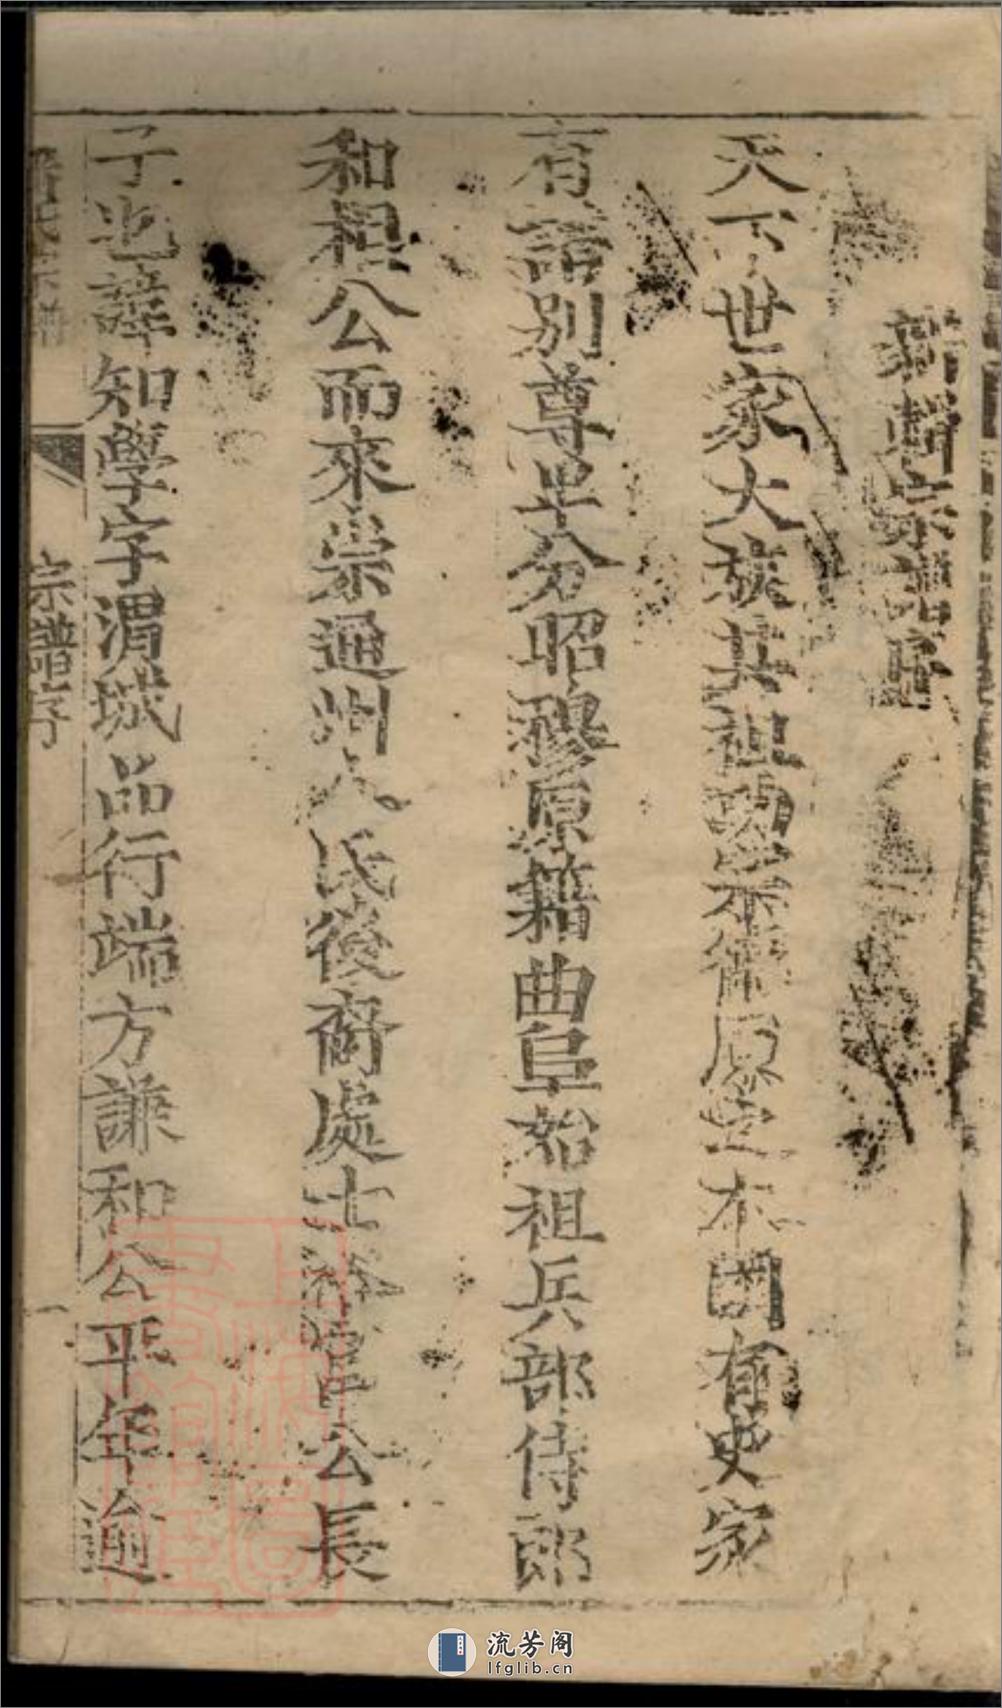 新輯宗譜序
天下世家大族其祖宗不傳原之本國有史家
有譜別尊卑分昭穆原籍曲阜始祖兵部侍郎
和相公而來崇通州人氏後裔處士公長
子也諱知學字渭城品行端方謙和公平年逾
宗譜序
一
上海圖書館藏
流芳阁
lfglib.cn